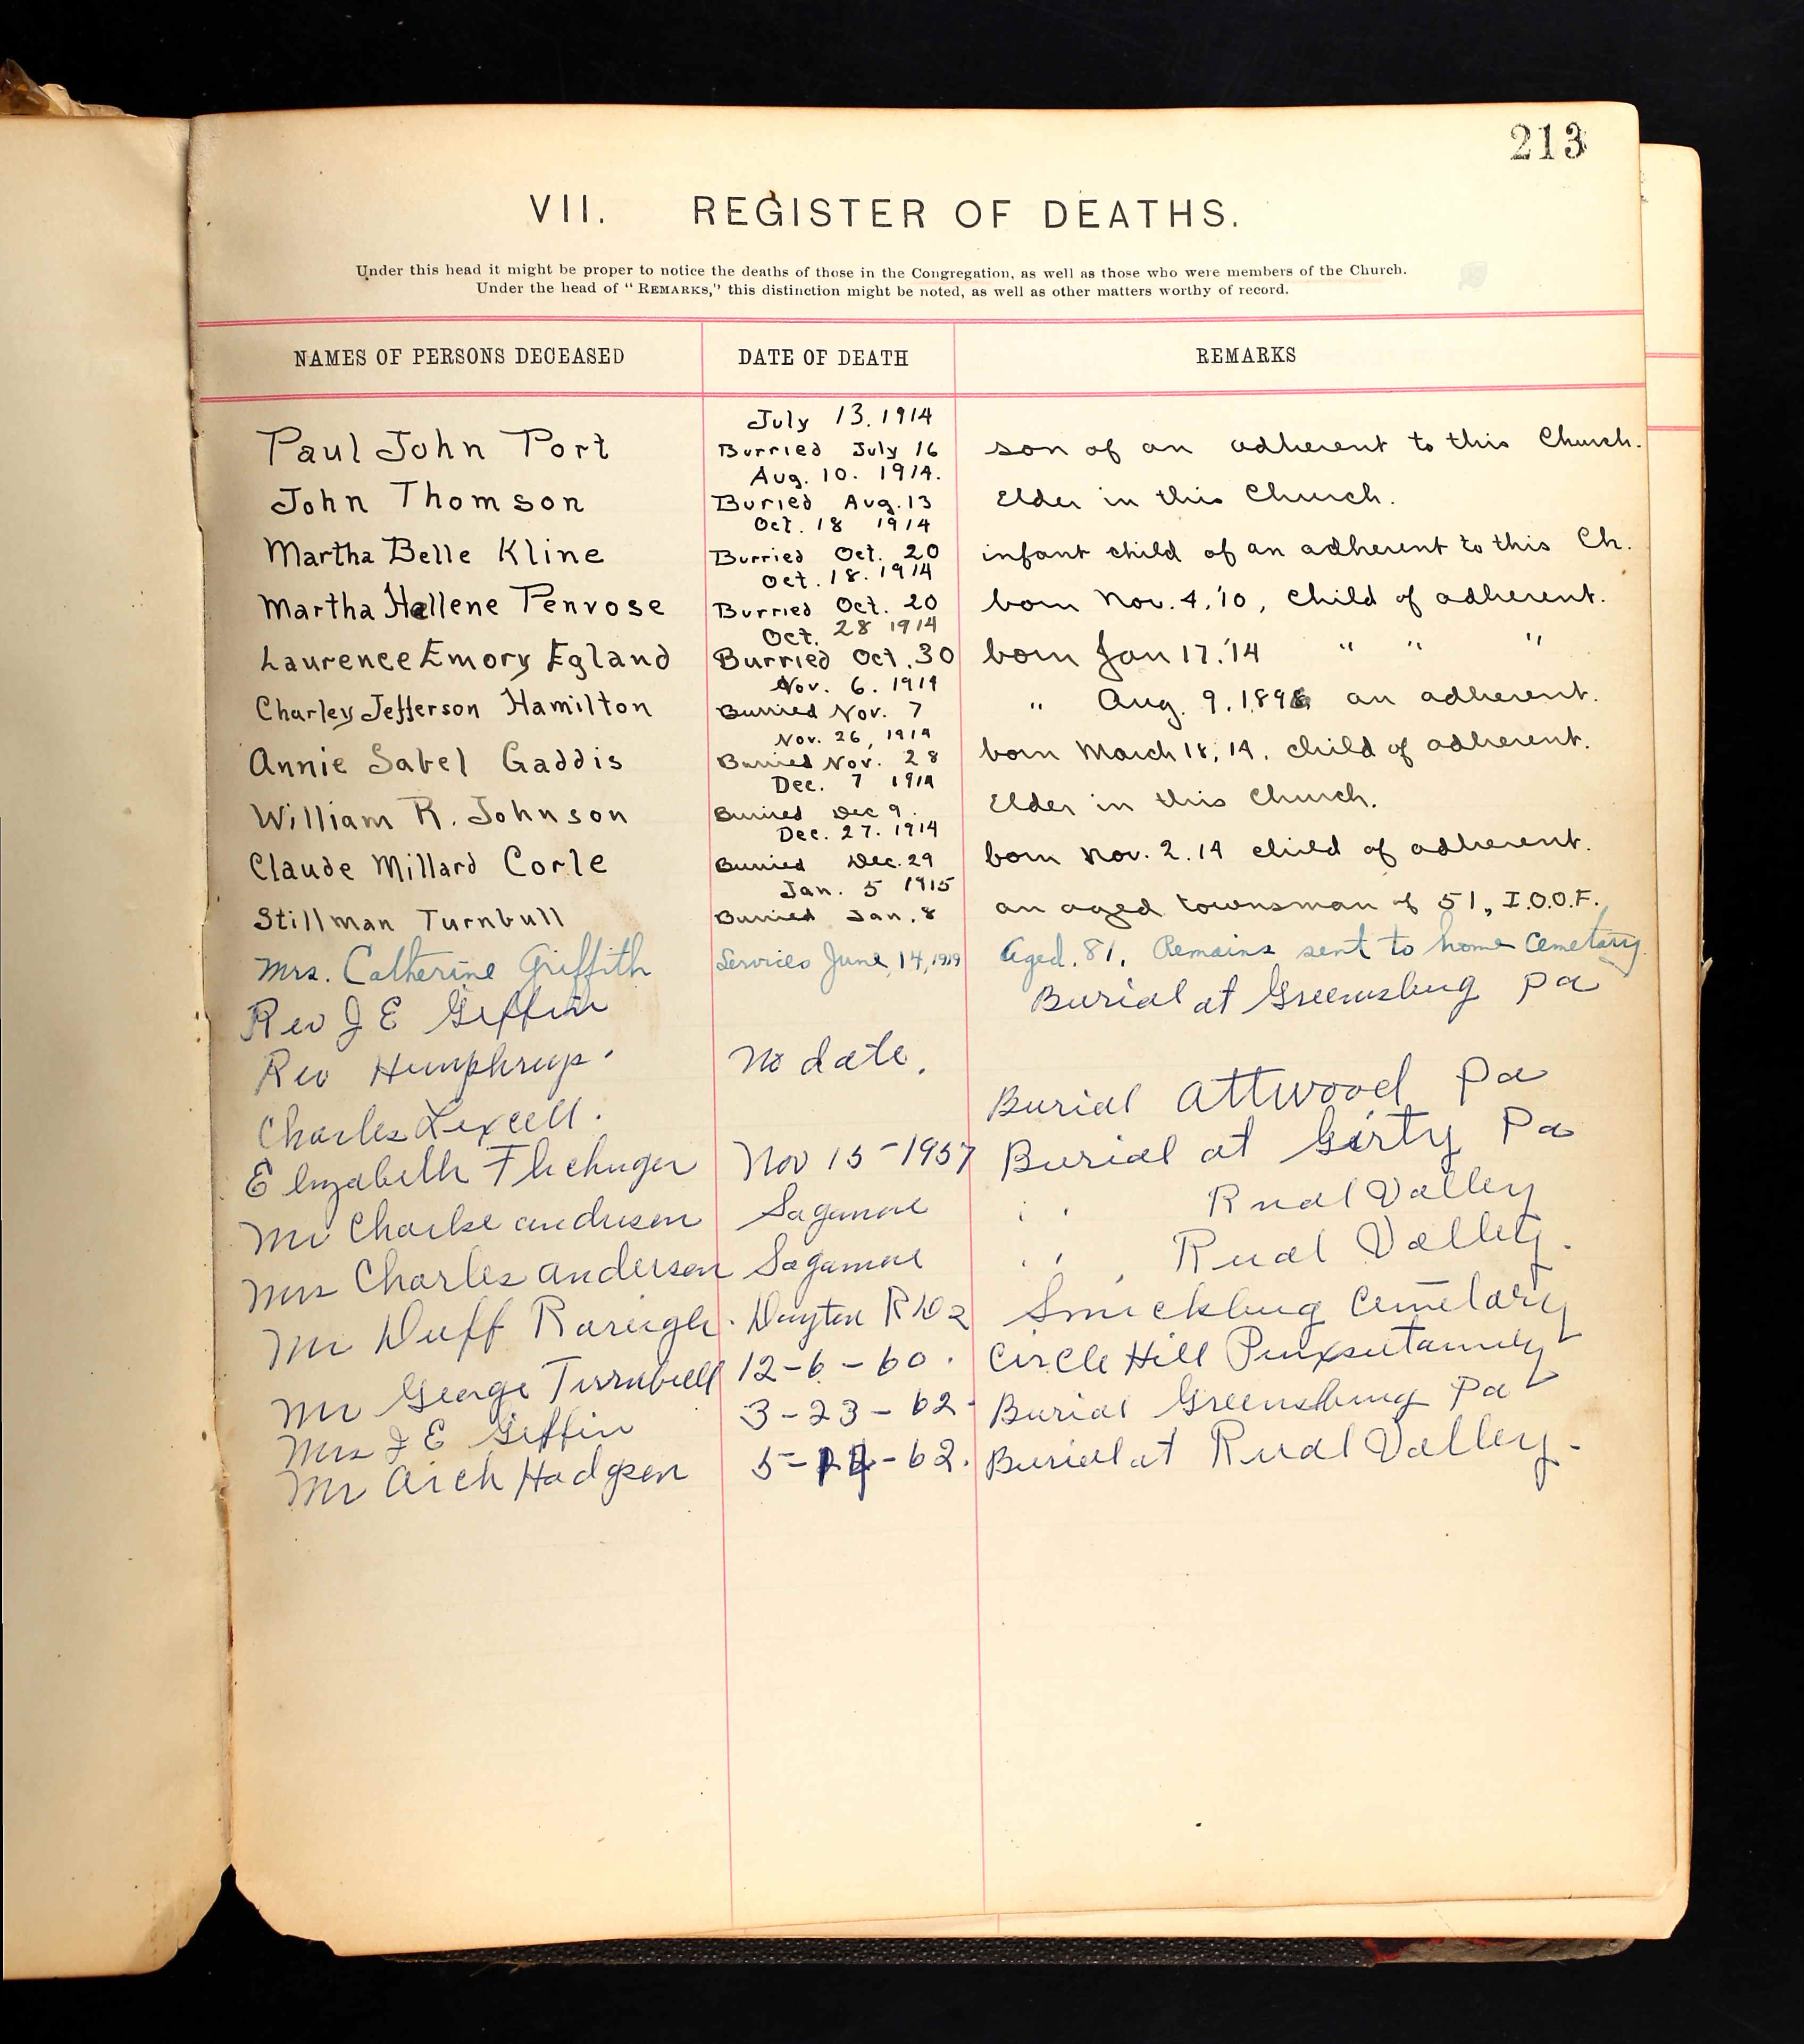 213
VII. REGISTER OF DEATHS.
Under this head it might be proper to notice the deaths of those in the Congregation, as well as those who were members of the Church.
Under the head of "REMARKS," this distinction might be noted, as well as other matters worthy of record.
NAMES OF PERSONS DECEASED DATE OF DEATH REMARKS
July 13. 1914
Paul John Port Burried July 16 son of an adherent to this Church.
Aug. 10. 1914.
John Thomson Buried Aug. 13 Elder in this Church.
Oct. 18 1914
Martha Belle Kline Burried Oct. 20 infant child of an adherent to this Ch.
Oct. 18. 1914
Martha Hellene Penrose Burried Oct. 20 born Nov. 4, '10, Child of adherent.
Oct. 28 1914
Laurence Emory Egland Burried Oct. 30 born Jan 17. '14 " " "
Nov. 6. 1914
Charley Jefferson Hamilton Burried Nov. 7 " Aug. 9, 1896 an adherent.
Nov. 26, 1914
Annie Sabel Gaddis Burried Nov. 28 born March 18, 14. child of adherent.
Dec. 7 1914
William R. Johnson Burried Dec 9. Elder in this Church.
Dec. 27. 1914
Claude Millard Corle Burried Dec. 29 born Nov. 2. 14 child of adherent.
Jan. 5 1915
Stillman Turnbull Burried Jan. 8 an aged townsman of 51, I.O.O.F.
Mrs. Catherine Griffith Services June, 14, 1919 Aged. 81. Remains sent to home Cemetary.
Rev J E Giffin Burial at Greensburg Pa
Rev Humphreys. No date.
Charles Lexcell. Burial Attwood Pa
Elizabeth Nov 15-1957 Burial at Girty Pa
Mr Charlse anderson Sagamore " Rual Valley
Mrs Charles anderson Sagamore " " Rual Valley.
Mr Duff Rareigh. Dayton R D 2 Smicksburg Cemetary
Mr George Turnbull 12-6-60. Circle Hill Punxsutawney
Mrs J E Giffin 3-23-62. Burial Greensburg Pa
Mr Arch Hodgson 5- -62. Burial at Rual Valley.